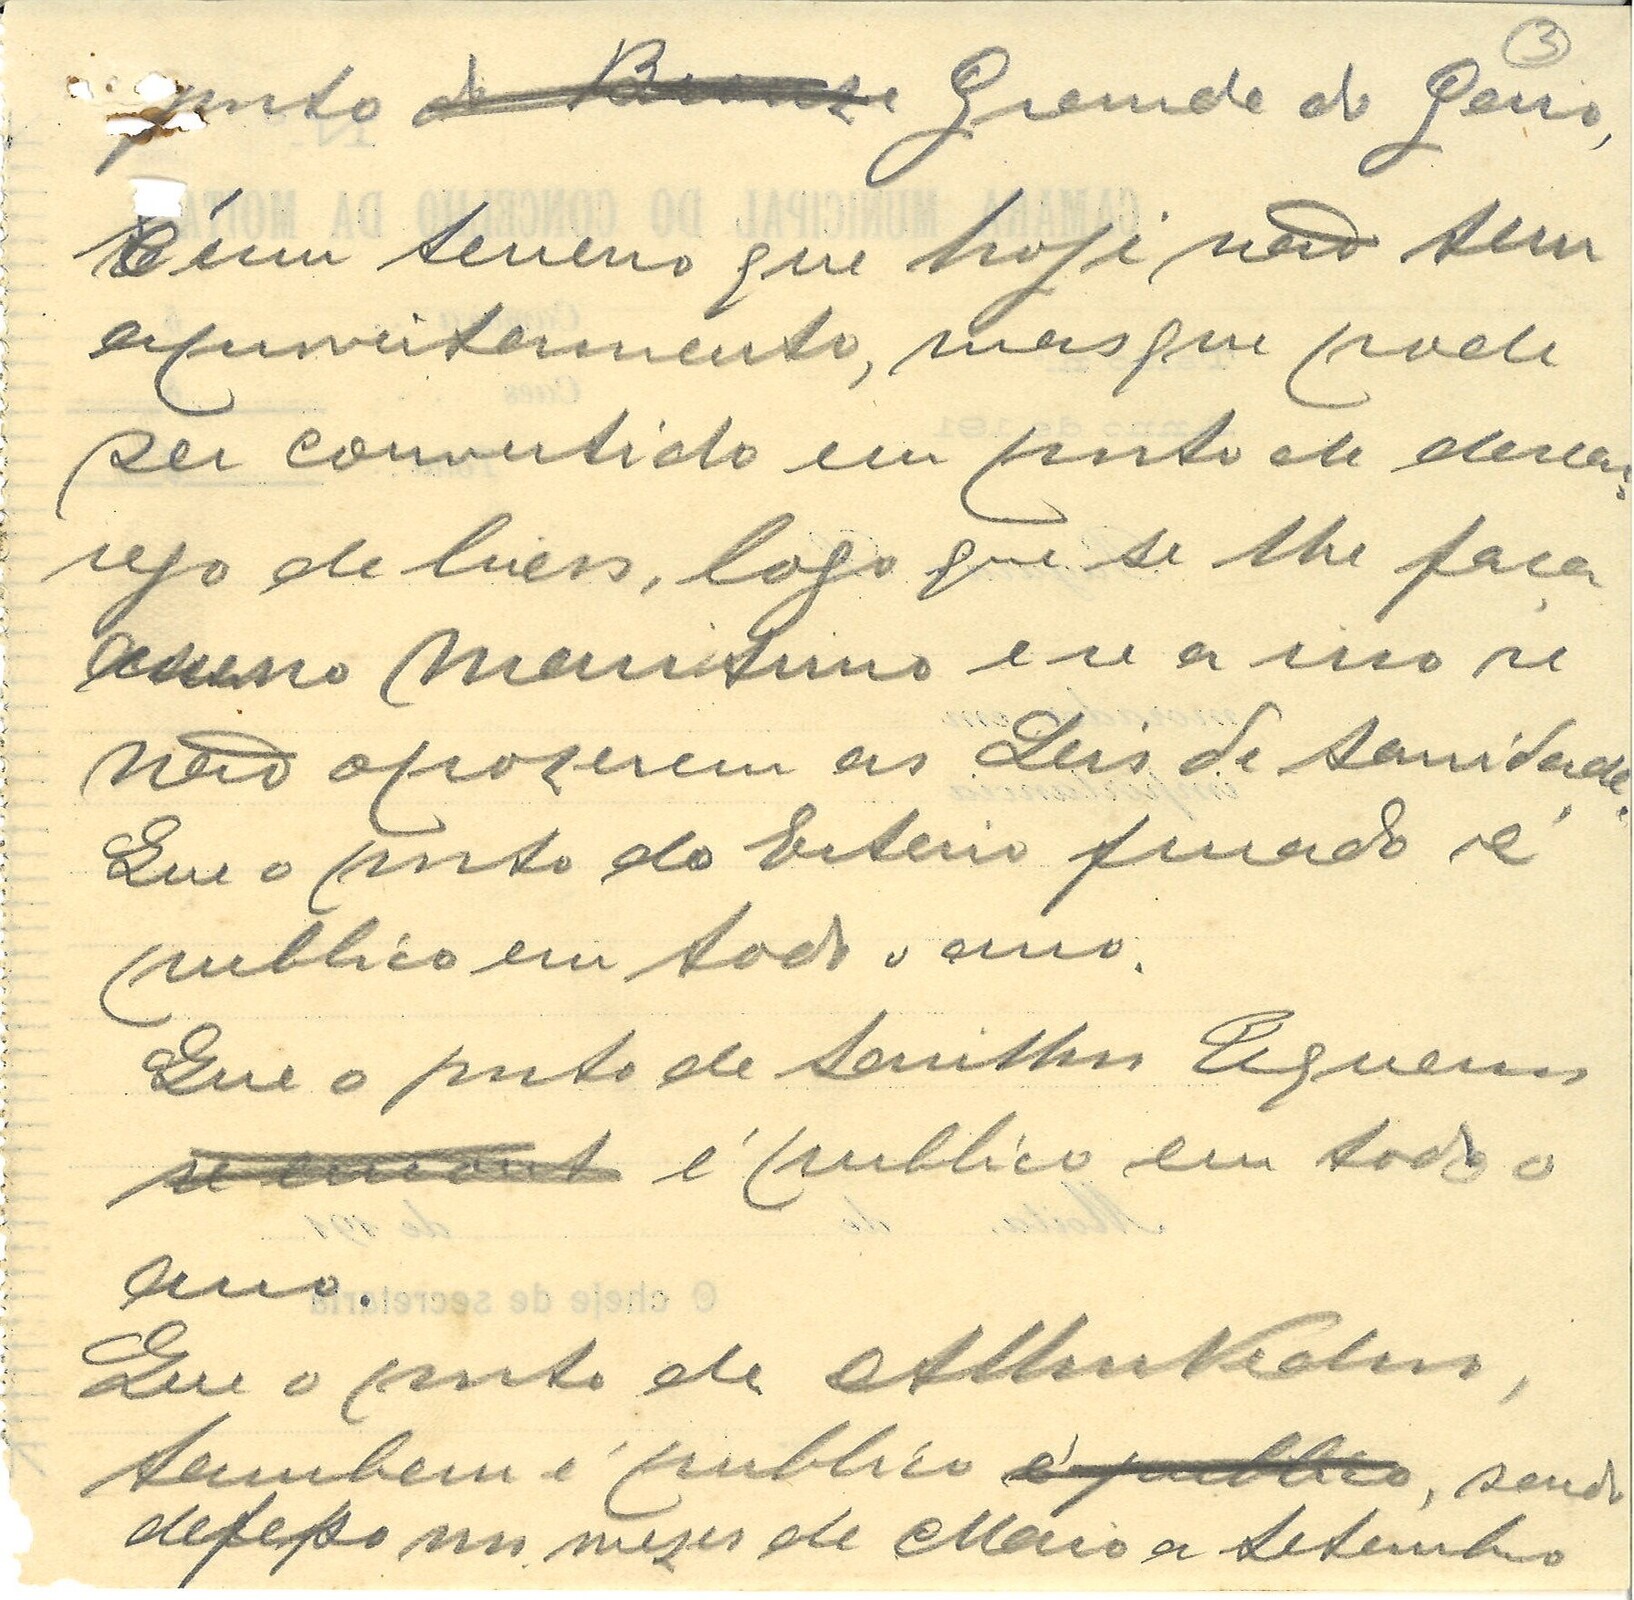 3
porto do Bronze Grande do Gaio,
é um terreno que hoje não tem
aproveitamento, mas que pode
ser convertido em porto de descar-
rego de lixos, logo que se lhe faça
acesso maritimo e se a isso se
não opozerem as Leis de sanidade.
Que o porto do Esteiro furado é
publico em todo o ano.
Que o porto de Sarilhos Piquenos
é publico em todo o
ano.
Que o porto de Alhos Vedros,
tambem é publico é publico, sendo
defeso nos mezes de Maio a Setembro
CAMARA MUNICIPAL DO CONCELHO DA MOITA
Moita, de de 191
O chefe de secretaria